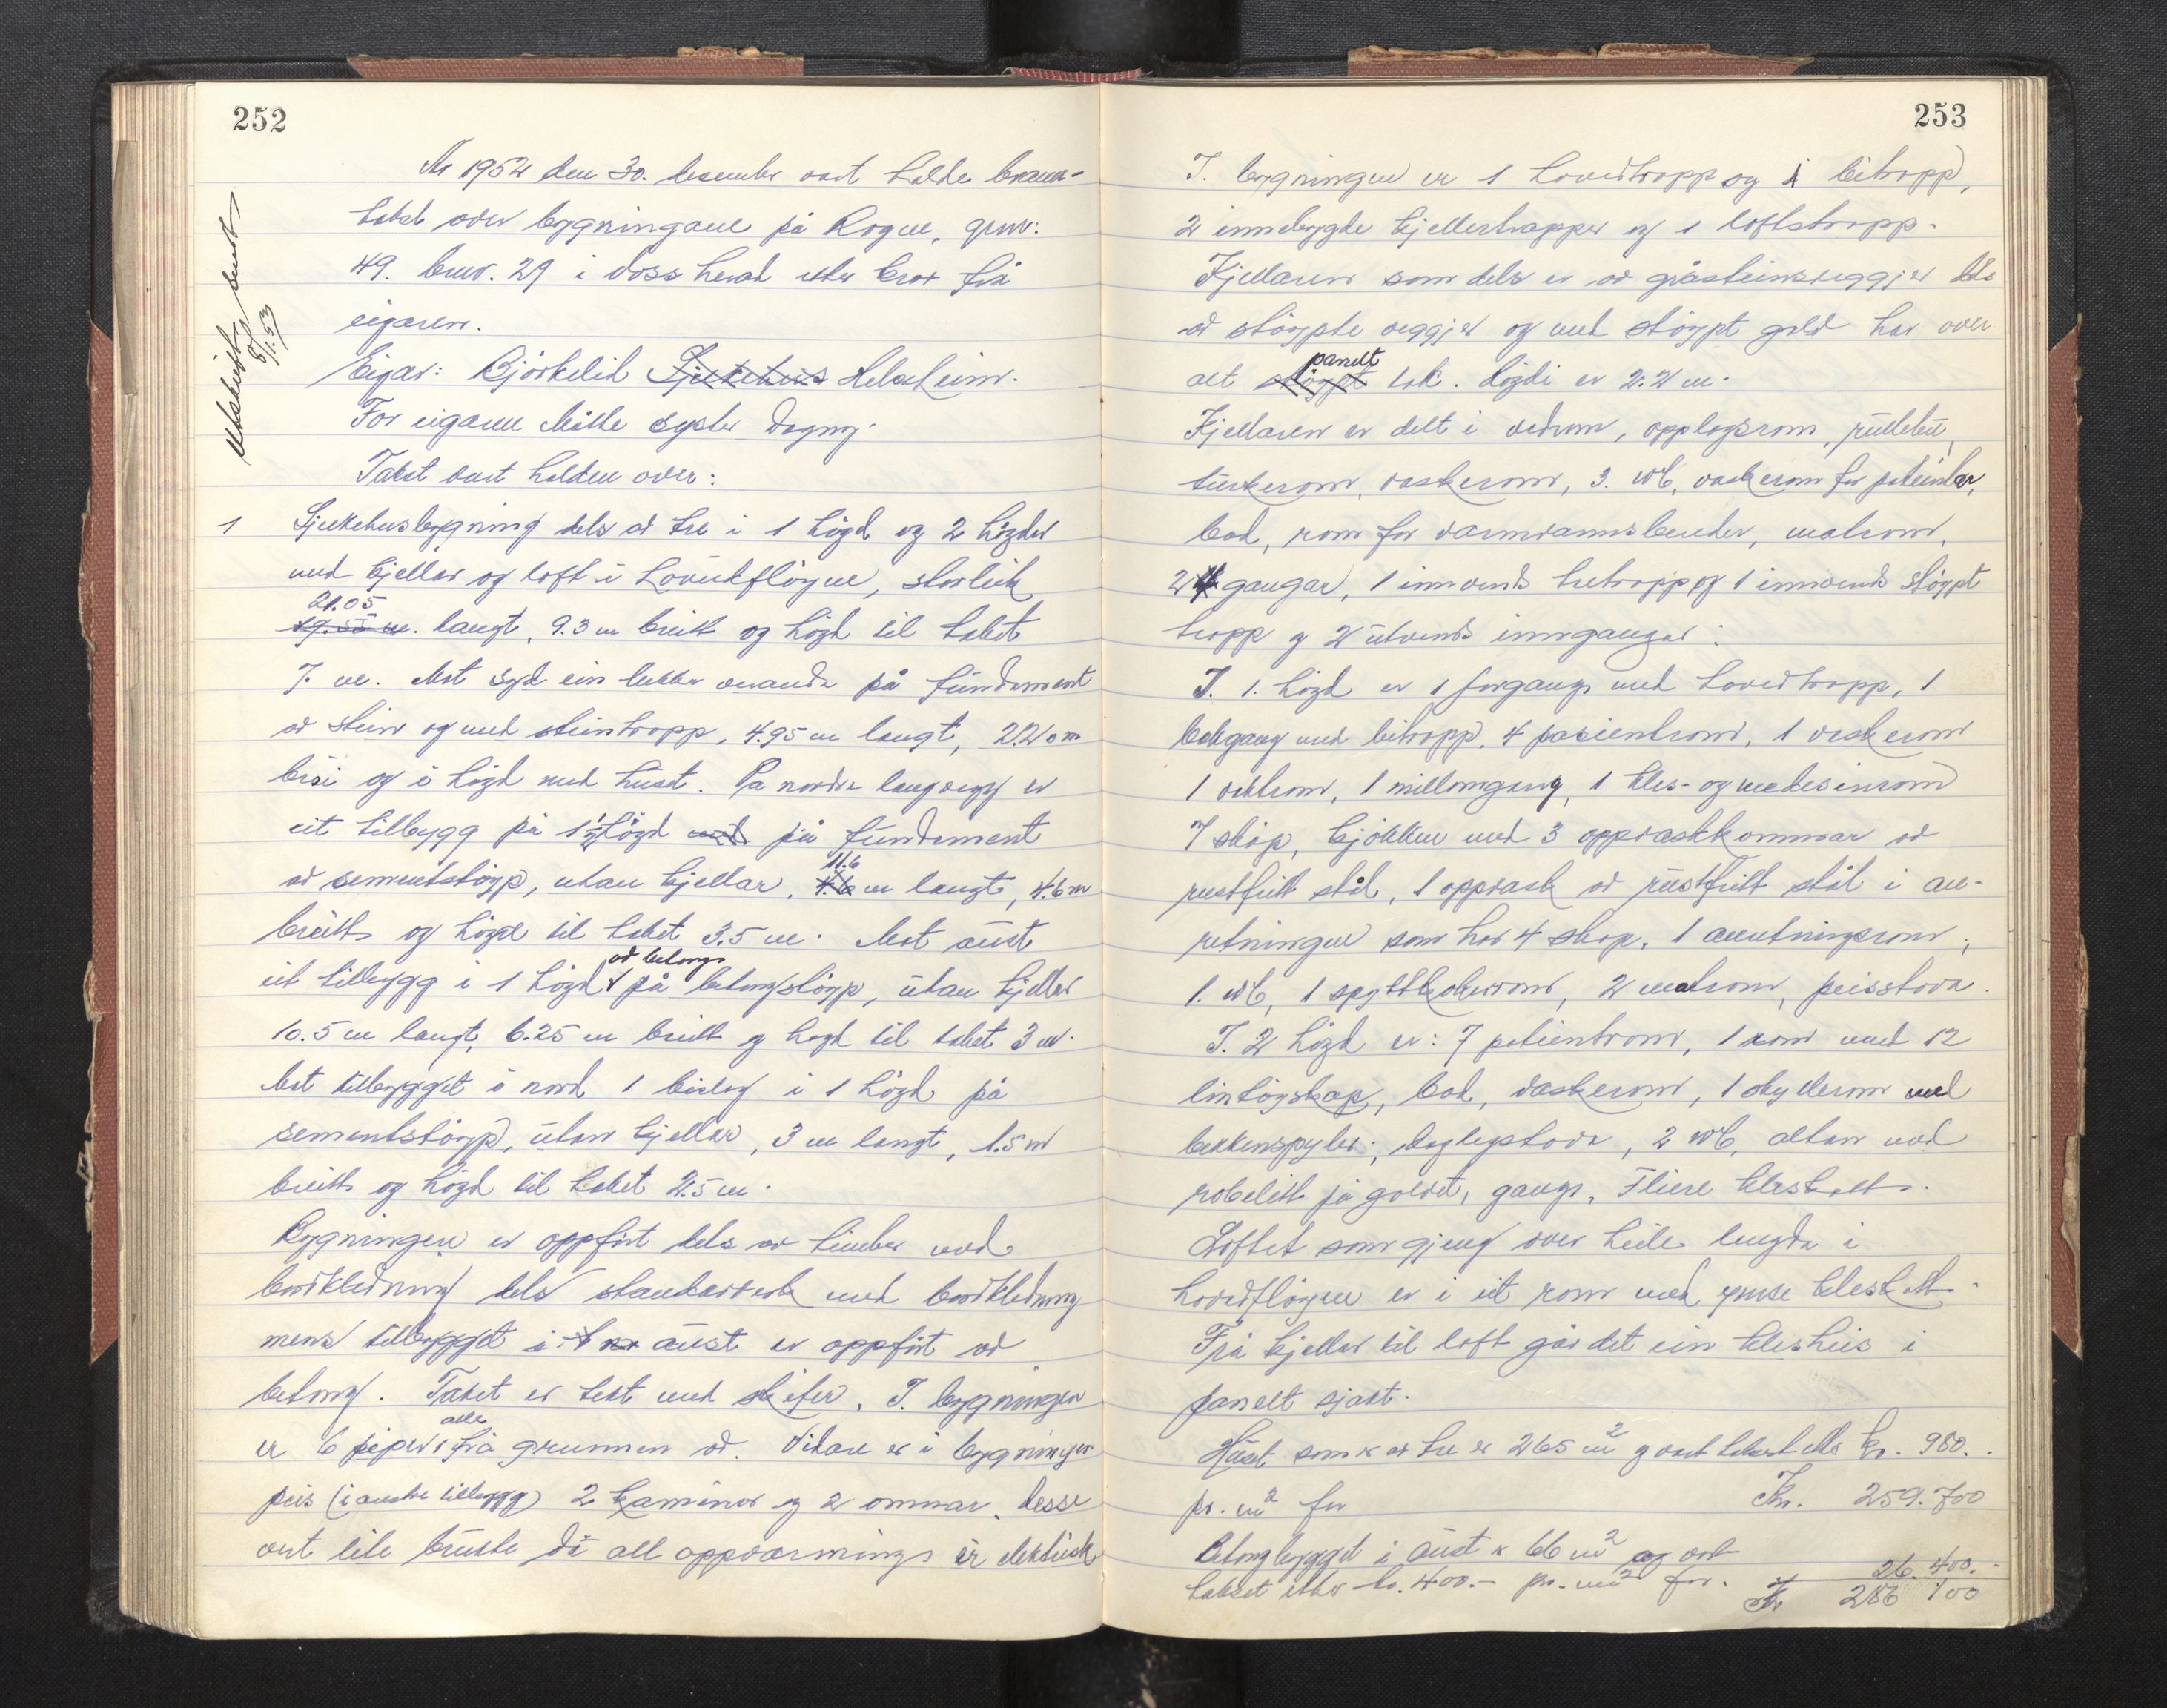 252
År 1952 den 30. desember vart halde brann-
takst over bygningane på Rogne, gnr:
49. bnr. 29 i Voss herad etter krav frå
eigaren.
Utskrift sendt
8/1.53
Eigar: Bjørkelid Sjukehus Helseheim.
For eigaren Møtte syster Dagny.
Takst vart halden over:
1 Sjukehusbygning dels av tre i 1 høgd og 2 høgder
med kjellar og loft i hovudfløyen, storleik
21.05
19.55 m. langt, 9.3 m breitt og høgd til taket
7 m. Mot syd ein lukka veranda på fundament
av stein og med steintropp, 4.95 m langt, 2.20 m
brei og i høgd med huset. På nordre langvegg er
eit tilbygg på 1 1/2 høgd med på fundament
11.6
av sementstøyp, utan kjellar, m langt, 4.6 m
breitt og høgd til taket 3.5 m. Mot aust
av betong
eit tilbygg i 1 høgd på betongstøyp, utan kjellar
10.5 m langt, 6.25 m breitt og høgd til taket 3 m.
Mot tilbygget i nord 1 bislag i 1 høgd på
sementstøyp, utan kjellar, 3 m langt, 1.5 m
breitt og høgd til taket 2.5 m.
Bygningen er oppført dels av timber med
bordkledning dels standarverk med bordkledning
mens tilbygget i aust er oppført av
betong. Taket er tekt med skifer. I bygningen
alle
er 6 piper frå grunnen av. Vidare er i bygningen
peis (i austre tilbygg) 2 kaminar og 2 omnar. Desse
vert lite brukte då all oppvarming er elektrisk
253
I bygningen er 1 hovedtropp og 1 bitropp,
2 innebygde kjellertrapper og 1 loftstropp.
Kjellaren som dels er av gråsteinsveggjer dels
av støypte veggjer og med støypt golv har over
panelt
alt støypt tak. Høgdi er 2.2 m.
Kjellaren er delt i vedrom, opplagsrom, rullebu,
turkerom, vaskerom, 3. WC, vaskerom for patienter,
bod, rom for varmvannsbereder, matrom,
2 gangar, 1 innvendi tretropp og 1 innvendi støypt
tropp og 2 utvendi inngangar.
I. 1. høgd er 1 forgang med hovedtropp, 1
bakgang med bitropp, 4 pasientrom, 1 vaskerom
1 vaktrom, 1 millomgang, 1 kles- og medesinrom
7 skåp, kjøkken med 3 oppvaskkommar av
rustfritt stål, 1 oppvask av rustfritt stål i an-
retningen som har 4 skap, 1 anretningsrom,
1. WC, 1 spyttkokerrom, 2 matrom, peisstova.
I. 2 høgd er: 7 patientrom, 1 rom med 12
lintøyskap, bad, vaskerom, 1 skyllerom med
bekkenspyler, daglegstova, 2 WC, altan med
robelitt på golvet, gang, Fliere kleskott.
Loftet som gjeng over heile lengda i
hovedfløyen er i eit rom med ymse kleskott.
Frå kjellar til loft går det ein klesheis i
panelt sjakt.
Huset som er av tre er 265 m² og vart takst etter kr. 980.-
pr. m² for Kr. 259.700
Betongbygget i aust er 66 m² og vart
takset etter kr. 400.- pr. m² for. 26.400.-
Kr 286 100